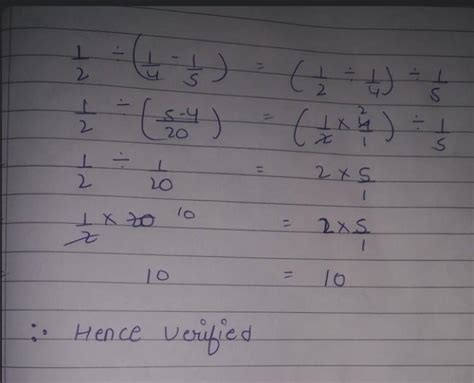 1/2 ÷ (1/4 - 1/5) = (1/2 ÷ 1/4) ÷ 1/5
1/2 ÷ (5-4/20) = (1/2 × 4/1 2) ÷ 1/5
1/2 ÷ 1/20 = 2 × 5/1
1/2 × 20 10 = 2 × 5/1
10 = 10
∴ Hence Verified